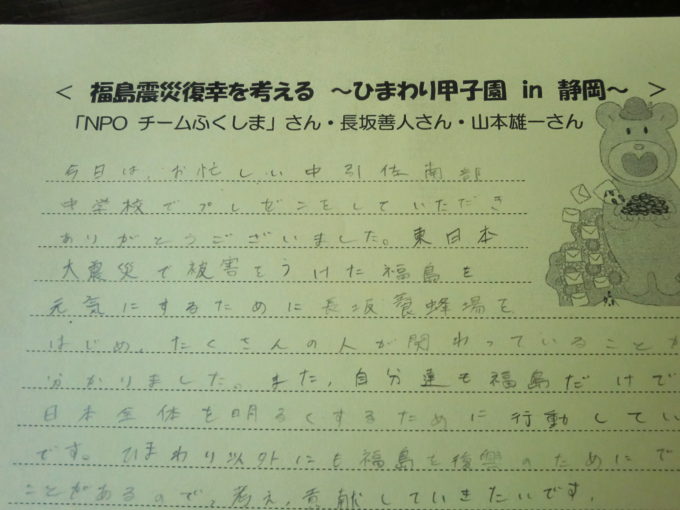 < 福島震災復幸を考える ～ひまわり甲子園 in 静岡～ >
「NPO チームふくしま」さん・長坂善人さん・山本雄一さん
今日は、お忙しい中引佐南部
中学校でプレゼンをしていただき
ありがとうございました。東日本
大震災で被害をうけた福島を
元気にするために長坂養蜂場を
はじめ、たくさんの人が関わっていることが
分かりました。また、自分達も福島だけで
日本全体を明るくするために行動してい
です。ひまわり以外にも福島を復興のためにで
ことがあるので、考え、貢献していきたいです。